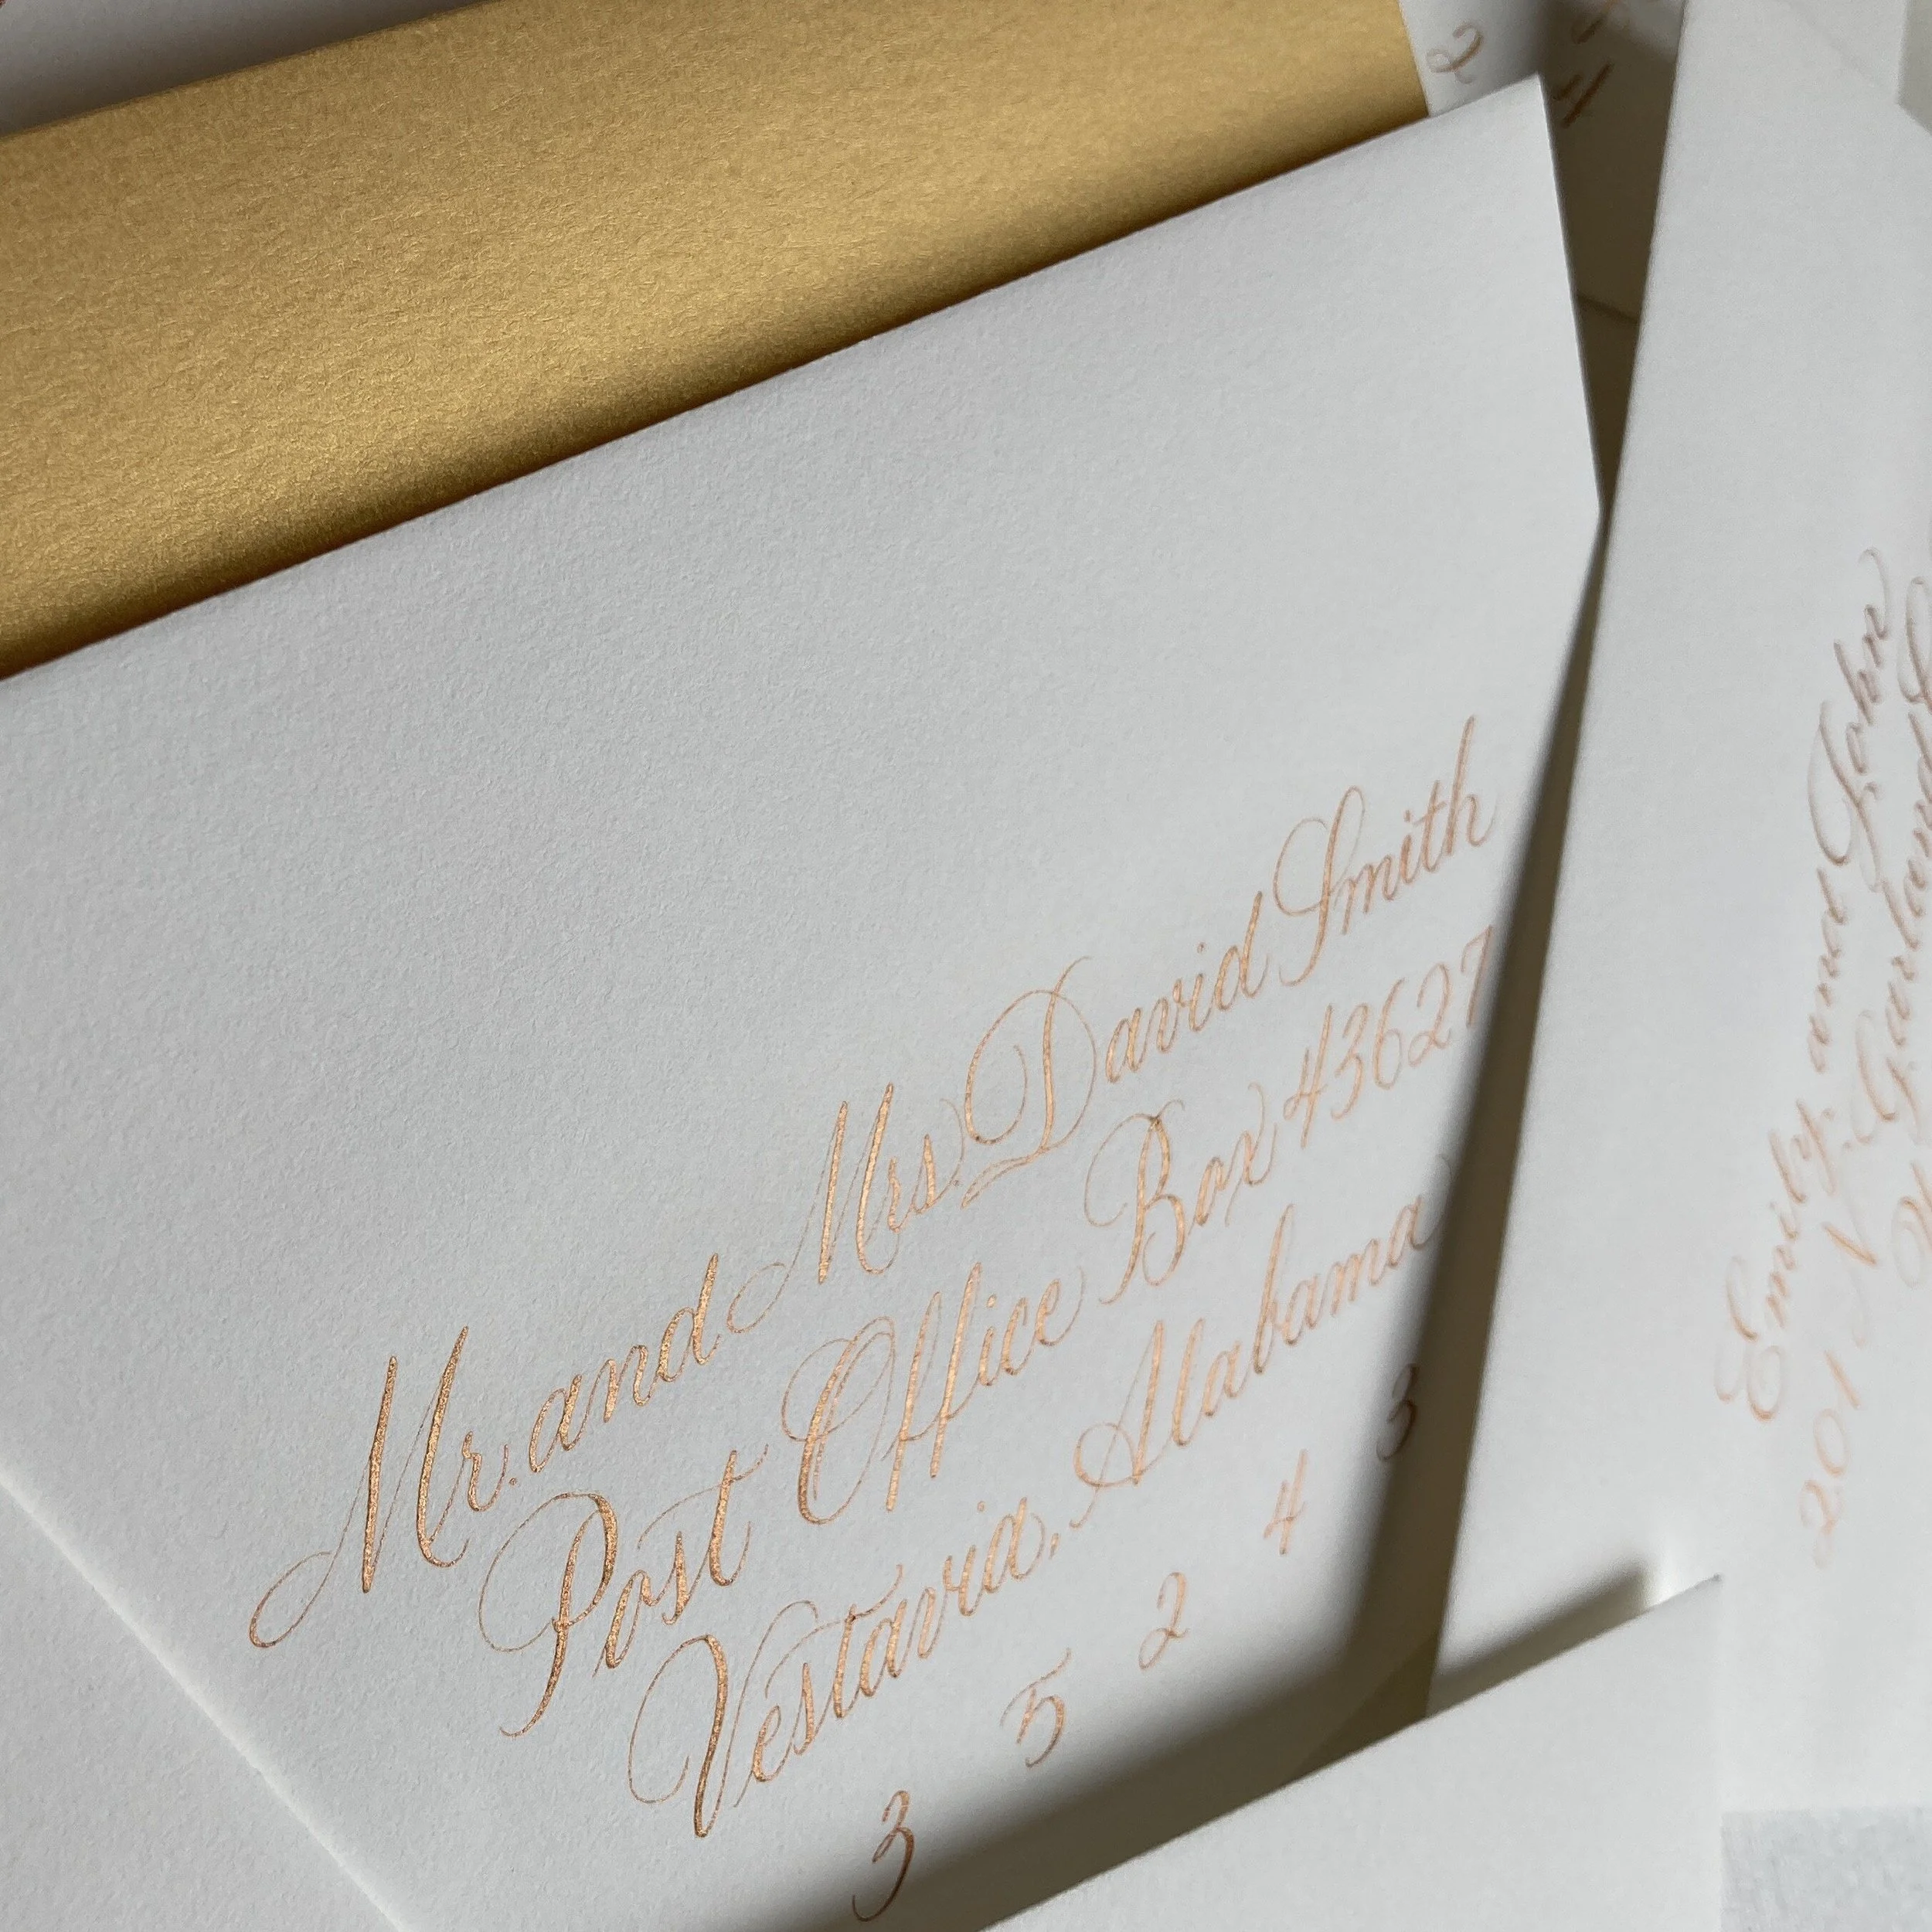 Mr. and Mrs. David Smith
Post Office Box 43627
Vestavia, Alabama
3 5 2 4 3
Emily and John
201 N. Garland
2
4